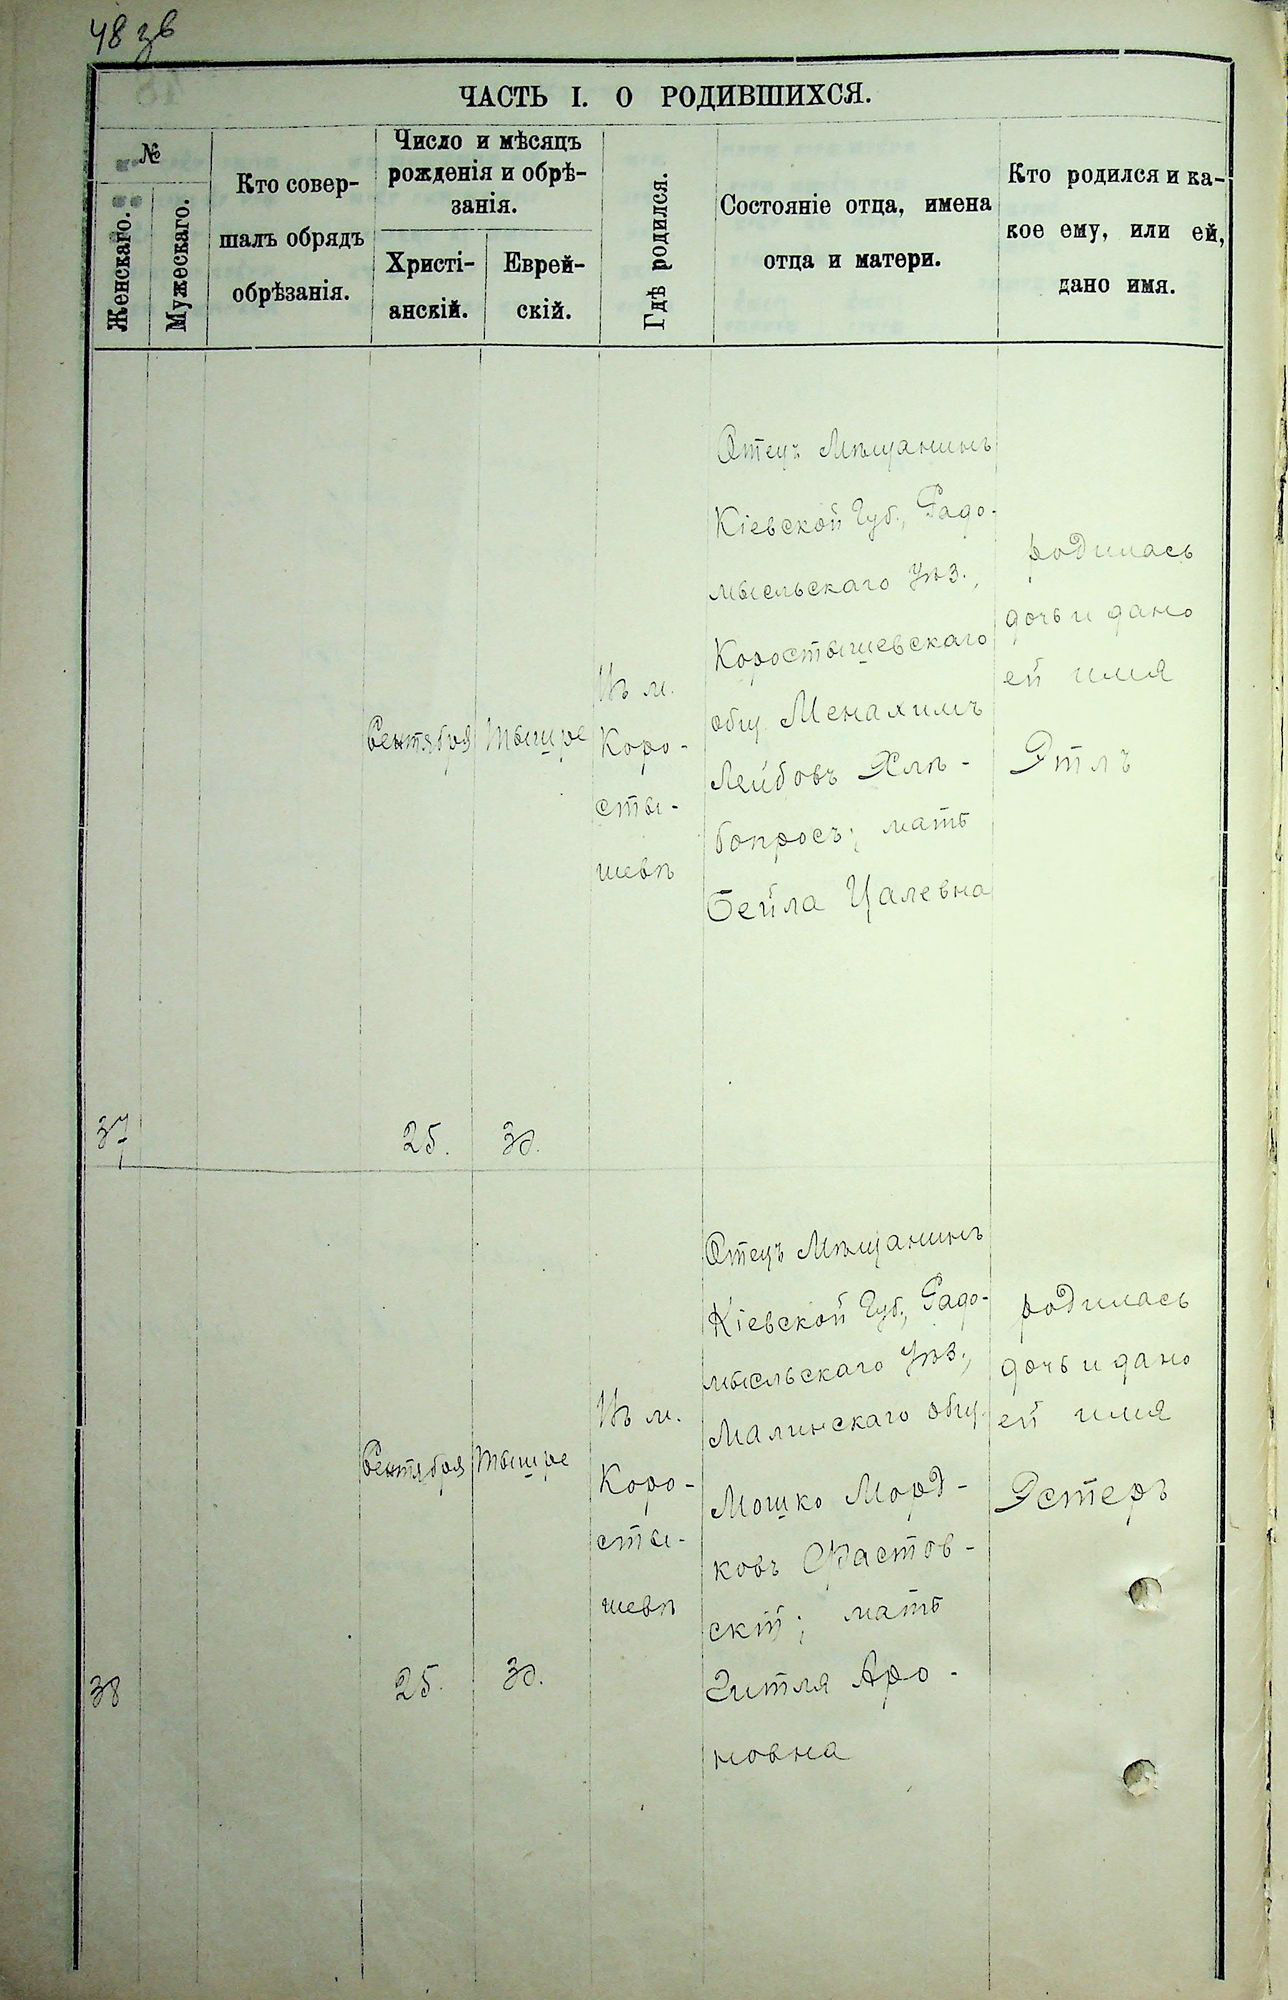 48 зв
ЧАСТЬ I. О РОДИВШИХСЯ.
№
Женскаго.
Мужескаго.
Кто совер-
шалъ обрядъ
обрѣзанія.
Число и мѣсяцъ
рожденія и обрѣ-
занія.
Христі-
анскій.
Еврей-
скій.
Гдѣ родился.
Состояніе отца, имена
отца и матери.
Кто родился и ка-
кое ему, или ей,
дано имя.
37
Сентября
25.
Тышре
30.
Въ м.
Коро-
сты-
шевѣ
Отецъ Мѣщанинъ
Кіевской Губ., Радо-
мысльскаго Уѣз.,
Коростышевскаго
общ Менахимъ
Лейбовъ Хлѣ-
бопросъ; мать
Бейла Цалевна
родилась
дочь и дано
ей имя
Этлъ
38
Сентября
25.
Тышре
30.
Въ м.
Коро-
сты-
шевѣ
Отецъ Мѣщанинъ
Кіевской Губ., Радо-
мысльскаго Уѣз.,
Малинскаго общ.
Мошко Морд-
ковъ Фастов-
скій; мать
Гитля Аро-
новна
родилась
дочь и дано
ей имя
Эстеръ